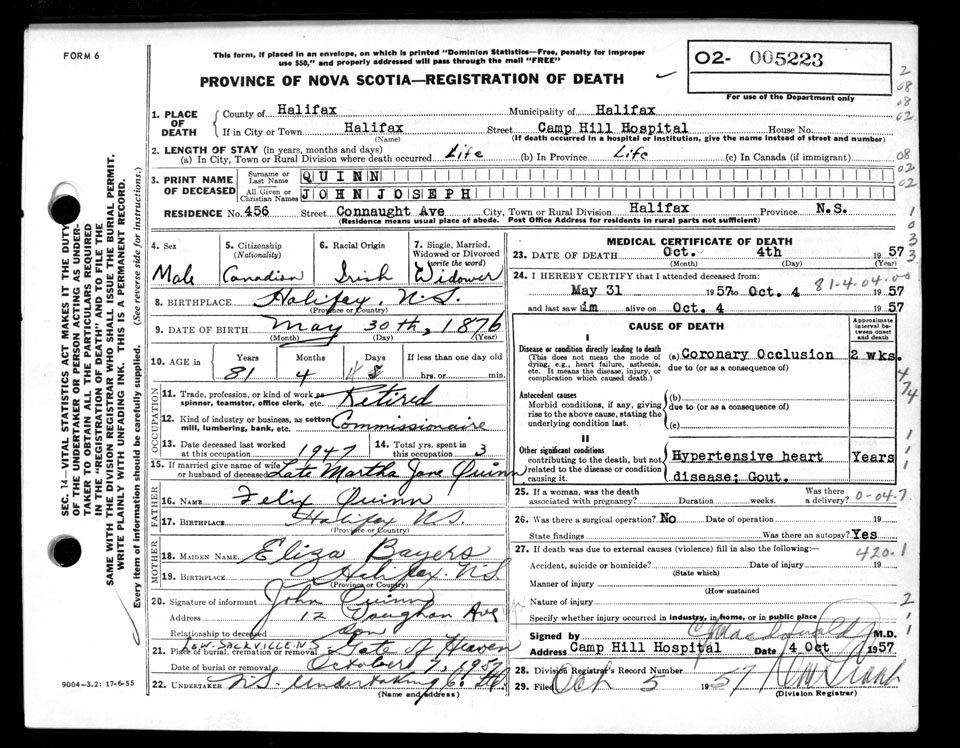 FORM 6
This form, if placed in an envelope, on which is printed "Dominion Statistics—Free, penalty for improper
use $50," and properly addressed will pass through the mail "FREE"
02- 005223
For use of the Department only
PROVINCE OF NOVA SCOTIA—REGISTRATION OF DEATH
1. PLACE OF DEATH
County of Halifax Municipality of Halifax
If in City or Town Halifax Street Camp Hill Hospital House No.
(Name) (If death occurred in a hospital or institution, give the name instead of street and number)
2. LENGTH OF STAY (in years, months and days)
(a) In City, Town or Rural Division where death occurred Life (b) In Province Life (c) In Canada (if immigrant)
3. PRINT NAME OF DECEASED
Surname or Last Name QUINN
All Given or Christian Names JOHN JOSEPH
RESIDENCE No. 456 Street Connaught Ave City, Town or Rural Division Halifax Province N.S.
(Residence means usual place of abode. Post Office Address for residents in rural parts not sufficient)
4. Sex Male
5. Citizenship (Nationality) Canadian
6. Racial Origin Irish
7. Single, Married, Widowed or Divorced (write the word) Widower
8. BIRTHPLACE Halifax, N.S.
(Province or Country)
9. DATE OF BIRTH May 30th, 1876
(Month) (Day) (Year)
10. AGE in Years Months Days If less than one day old
81 4 hrs. or min.
OCCUPATION
11. Trade, profession, or kind of work as spinner, teamster, office clerk, etc. Retired
12. Kind of industry or business, as cotton mill, lumbering, bank, etc. Commissionaire
13. Date deceased last worked at this occupation 1947
14. Total yrs. spent in this occupation 3
15. If married give name of wife or husband of deceased Late Martha Jane Quinn
FATHER
16. NAME Felix Quinn
17. BIRTHPLACE Halifax N.S.
(Province or Country)
MOTHER
18. MAIDEN NAME Eliza Bayers
19. BIRTHPLACE Halifax N.S.
(Province or Country)
20. Signature of informant John Quinn
Address 12 Vaughan Ave
Relationship to deceased son
LOW. SACKVILLE N.S.
21. Place of burial, cremation or removal Gate of Heaven
Date of burial or removal October 7, 1957
22. UNDERTAKER N.S. Undertaking Co. Ltd.
(Name and address)
MEDICAL CERTIFICATE OF DEATH
23. DATE OF DEATH Oct. 4th 1957
(Month) (Day) (Year)
24. I HEREBY CERTIFY that I attended deceased from:
May 31 1957 to Oct. 4 1957
81-4-04-00
and last saw him alive on Oct. 4 1957
CAUSE OF DEATH
Approximate interval between onset and death
I
Disease or condition directly leading to death
(This does not mean the mode of dying, e.g., heart failure, asthenia, etc. It means the disease, injury, or complication which caused death.)
(a) Coronary Occlusion 2 wks.
due to (or as a consequence of)
Antecedent causes
Morbid conditions, if any, giving rise to the above cause, stating the underlying condition last.
(b)
due to (or as a consequence of)
(c)
II
Other significant conditions
contributing to the death, but not related to the disease or condition causing it.
Hypertensive heart Years
disease; Gout.
25. If a woman, was the death associated with pregnancy? Duration weeks. Was there a delivery?
0-04-7
26. Was there a surgical operation? No Date of operation 19
State findings Was there an autopsy? Yes
27. If death was due to external causes (violence) fill in also the following:—
420.1
Accident, suicide or homicide? Date of injury 19
(State which)
Manner of injury
(How sustained)
Nature of injury
Specify whether injury occurred in industry, in home, or in public place
Signed by M.D.
Address Camp Hill Hospital Date 4 Oct 1957
28. Division Registrar's Record Number
29. Filed Oct 5 1957
(Division Registrar)
9004—3.2: 17-6-55
SEC. 14—VITAL STATISTICS ACT MAKES IT THE DUTY
OF THE UNDERTAKER OR PERSON ACTING AS UNDER-
TAKER TO OBTAIN ALL THE PARTICULARS REQUIRED
IN THE "REGISTRATION OF DEATH" AND TO FILE THE
SAME WITH THE DIVISION REGISTRAR WHO SHALL ISSUE THE BURIAL PERMIT.
WRITE PLAINLY WITH UNFADING INK. THIS IS A PERMANENT RECORD.
Every item of information should be carefully supplied. (See reverse side for instructions.)